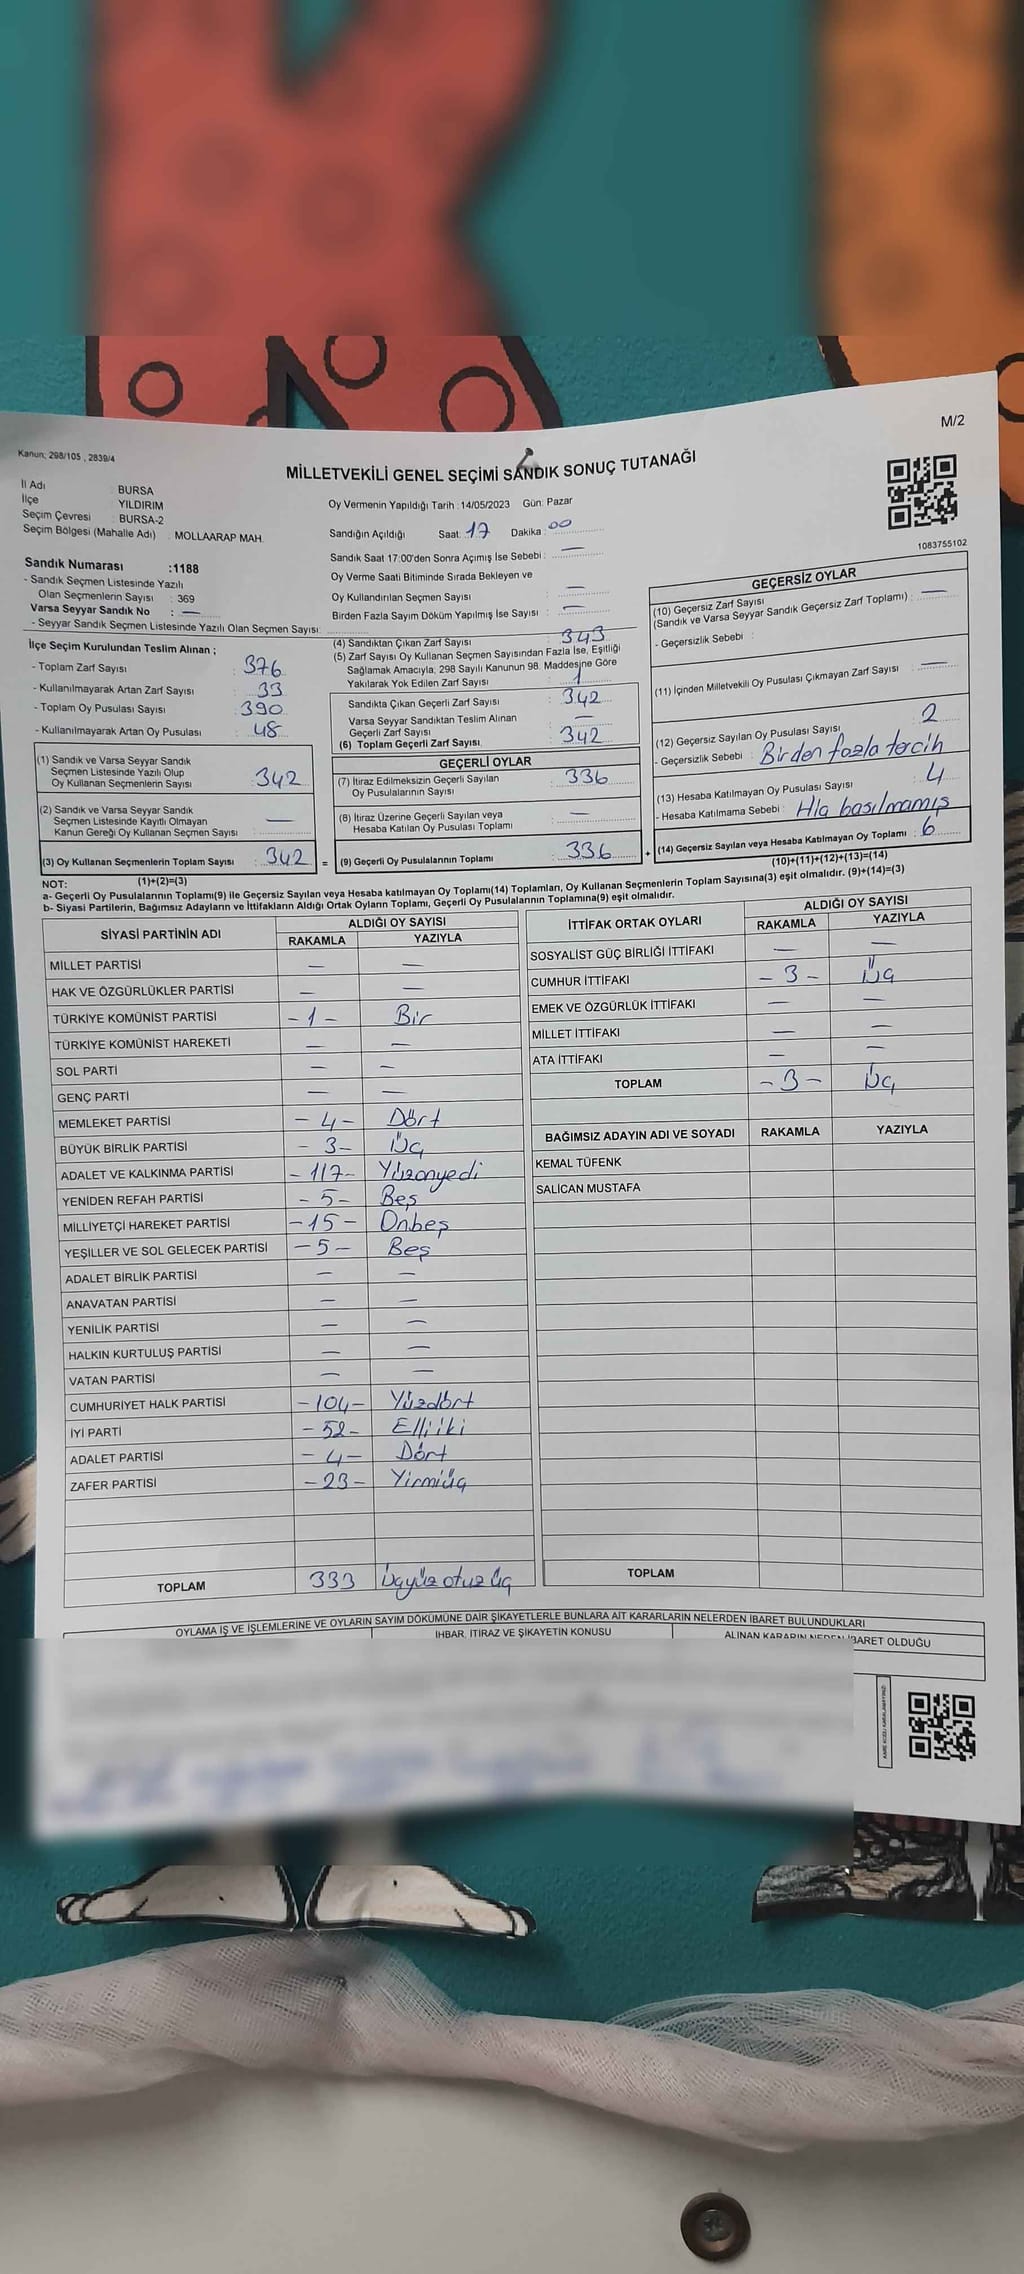 M/2
Kanun; 298/105 , 2839/4
MİLLETVEKİLİ GENEL SEÇİMİ SANDIK SONUÇ TUTANAĞI
İl Adı : BURSA
İlçe YILDIRIM
Seçim Çevresi : BURSA-2
Seçim Bölgesi (Mahalle Adı) : MOLLAARAP MAH.
Sandık Numarası :1188
- Sandık Seçmen Listesinde Yazılı
Olan Seçmenlerin Sayısı : 369
Varsa Seyyar Sandık No : —
- Seyyar Sandık Seçmen Listesinde Yazılı Olan Seçmen Sayısı:
Oy Vermenin Yapıldığı Tarih :14/05/2023 Gün: Pazar
Sandığın Açıldığı Saat: 17 Dakika : 00
Sandık Saat 17:00'den Sonra Açımış İse Sebebi : —
Oy Verme Saati Bitiminde Sırada Bekleyen ve
Oy Kullandırılan Seçmen Sayısı : —
Birden Fazla Sayım Döküm Yapılmış İse Sayısı : —
1083755102
İlçe Seçim Kurulundan Teslim Alınan ;
- Toplam Zarf Sayısı : 376
- Kullanılmayarak Artan Zarf Sayısı : 33
- Toplam Oy Pusulası Sayısı : 390
- Kullanılmayarak Artan Oy Pusulası : 48
(1) Sandık ve Varsa Seyyar Sandık
Seçmen Listesinde Yazılı Olup
Oy Kullanan Seçmenlerin Sayısı : 342
(2) Sandık ve Varsa Seyyar Sandık
Seçmen Listesinde Kayıtlı Olmayan
Kanun Gereği Oy Kullanan Seçmen Sayısı : —
(3) Oy Kullanan Seçmenlerin Toplam Sayısı : 342 =
(1)+(2)=(3)
(4) Sandıktan Çıkan Zarf Sayısı : 343
(5) Zarf Sayısı Oy Kullanan Seçmen Sayısından Fazla İse, Eşitliği
Sağlamak Amacıyla, 298 Sayılı Kanunun 98. Maddesine Göre
Yakılarak Yok Edilen Zarf Sayısı : 1
Sandıkta Çıkan Geçerli Zarf Sayısı : 342
Varsa Seyyar Sandıktan Teslim Alınan
Geçerli Zarf Sayısı : —
(6) Toplam Geçerli Zarf Sayısı : 342
GEÇERLİ OYLAR
(7) İtiraz Edilmeksizin Geçerli Sayılan
Oy Pusulalarının Sayısı : 336
(8) İtiraz Üzerine Geçerli Sayılan veya
Hesaba Katılan Oy Pusulası Toplamı : —
(9) Geçerli Oy Pusulalarının Toplamı : 336 +
GEÇERSİZ OYLAR
(10) Geçersiz Zarf Sayısı
(Sandık ve Varsa Seyyar Sandık Geçersiz Zarf Toplamı) : —
- Geçersizlik Sebebi :
(11) İçinden Milletvekili Oy Pusulası Çıkmayan Zarf Sayısı : —
(12) Geçersiz Sayılan Oy Pusulası Sayısı : 2
- Geçersizlik Sebebi : Birden fazla tercih
(13) Hesaba Katılmayan Oy Pusulası Sayısı : 4
- Hesaba Katılmama Sebebi : Hiç basılmamış
(14) Geçersiz Sayılan veya Hesaba Katılmayan Oy Toplamı : 6
(10)+(11)+(12)+(13)=(14)
NOT:
a- Geçerli Oy Pusulalarının Toplamı(9) ile Geçersiz Sayılan veya Hesaba katılmayan Oy Toplamı(14) Toplamları, Oy Kullanan Seçmenlerin Toplam Sayısına(3) eşit olmalıdır. (9)+(14)=(3)
b- Siyasi Partilerin, Bağımsız Adayların ve İttifakların Aldığı Ortak Oyların Toplamı, Geçerli Oy Pusulalarının Toplamına(9) eşit olmalıdır.
SİYASİ PARTİNİN ADI ALDIĞI OY SAYISI
RAKAMLA YAZIYLA
MİLLET PARTİSİ — —
HAK VE ÖZGÜRLÜKLER PARTİSİ — —
TÜRKİYE KOMÜNİST PARTİSİ -1- Bir
TÜRKİYE KOMÜNİST HAREKETİ — —
SOL PARTİ — —
GENÇ PARTİ — —
MEMLEKET PARTİSİ -4- Dört
BÜYÜK BİRLİK PARTİSİ -3- Üç
ADALET VE KALKINMA PARTİSİ -117- Yüzonyedi
YENİDEN REFAH PARTİSİ -5- Beş
MİLLİYETÇİ HAREKET PARTİSİ -15- Onbeş
YEŞİLLER VE SOL GELECEK PARTİSİ -5- Beş
ADALET BİRLİK PARTİSİ — —
ANAVATAN PARTİSİ — —
YENİLİK PARTİSİ — —
HALKIN KURTULUŞ PARTİSİ — —
VATAN PARTİSİ — —
CUMHURİYET HALK PARTİSİ -104- Yüzdört
İYİ PARTİ -52- Elliiki
ADALET PARTİSİ -4- Dört
ZAFER PARTİSİ -23- Yirmiüç
TOPLAM 333 Üçyüz otuz üç
İTTİFAK ORTAK OYLARI ALDIĞI OY SAYISI
RAKAMLA YAZIYLA
SOSYALİST GÜÇ BİRLİĞİ İTTİFAKI — —
CUMHUR İTTİFAKI -3- Üç
EMEK VE ÖZGÜRLÜK İTTİFAKI — —
MİLLET İTTİFAKI — —
ATA İTTİFAKI — —
TOPLAM -3- Üç
BAĞIMSIZ ADAYIN ADI VE SOYADI RAKAMLA YAZIYLA
KEMAL TÜFENK
SALİCAN MUSTAFA
TOPLAM
OYLAMA İŞ VE İŞLEMLERİNE VE OYLARIN SAYIM DÖKÜMÜNE DAİR ŞİKAYETLERLE BUNLARA AİT KARARLARIN NELERDEN İBARET BULUNDUKLARI
İHBAR, İTİRAZ VE ŞİKAYETİN KONUSU
ALINAN KARARIN NEDEN İBARET OLDUĞU